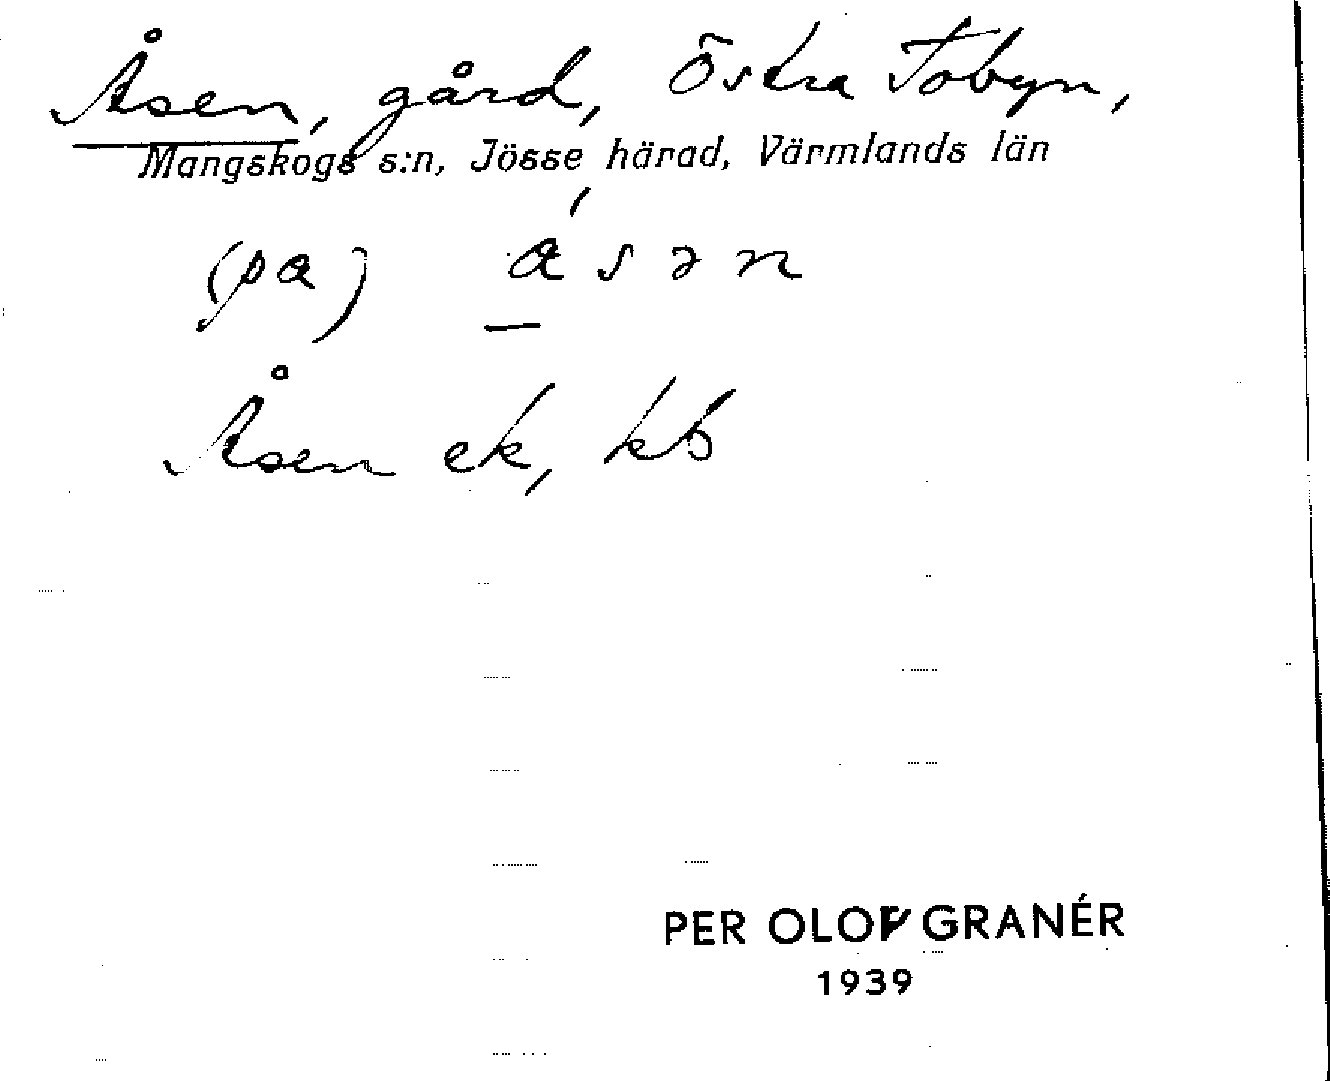 Åsen, gård, Östra Tobyn,
Mangskogs s:n, Jösse härad, Värmlands län
(pɑ) ɑ́sən
Åsen ek, kb
PER OLOF GRANÉR
1939